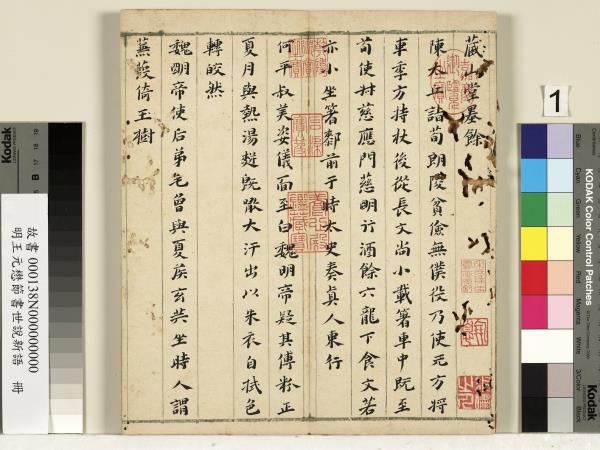 藏山堂墨餘
陳太丘詣荀朗陵貧儉無僕役乃使元方將
車季方持杖後從長文尚小載箸車中既至
荀使叔慈應門慈明行酒餘六龍下食文若
亦小坐箸厀前于時太史奏真人東行
何平叔美姿儀面至白魏明帝疑其傅粉正
夏月與熱湯䴵既歠大汗出以朱衣自拭色
轉皎然
魏明帝使后弟毛曾與夏侯玄共坐時人謂
蒹葭倚玉樹
1
KODAK Color Control Patches
Blue
Cyan
Green
Yellow
Red
Magenta
White
3/Color
Black
Kodak
故書 000138N000000000
明王元懋節書世說新語 冊